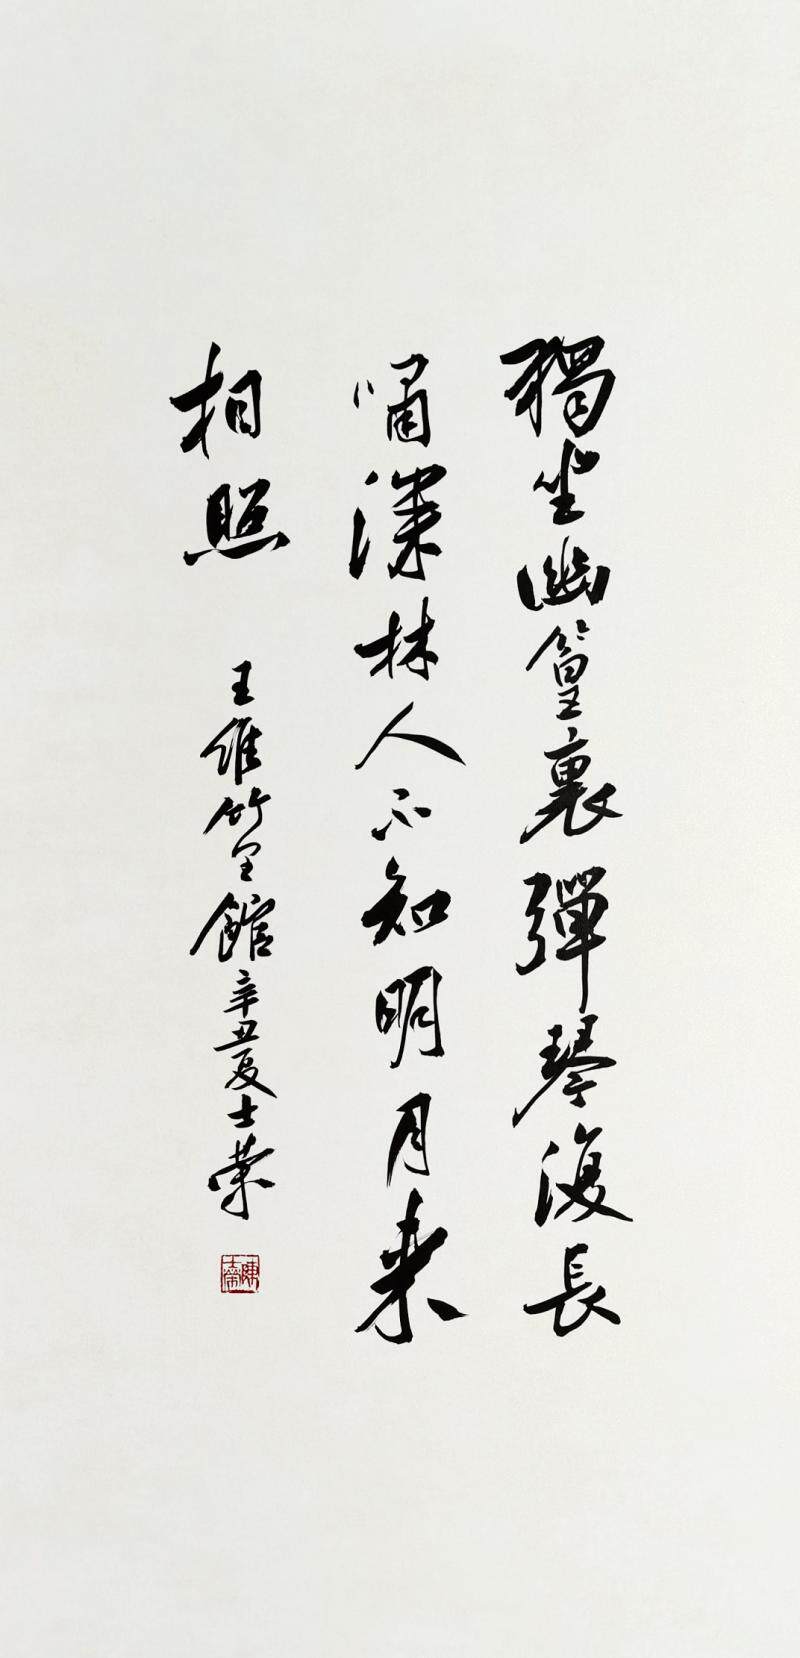 獨坐幽篁裏彈琴復長
嘯深林人不知明月来
相照
王維竹里館辛丑夏士荣
陳士荣